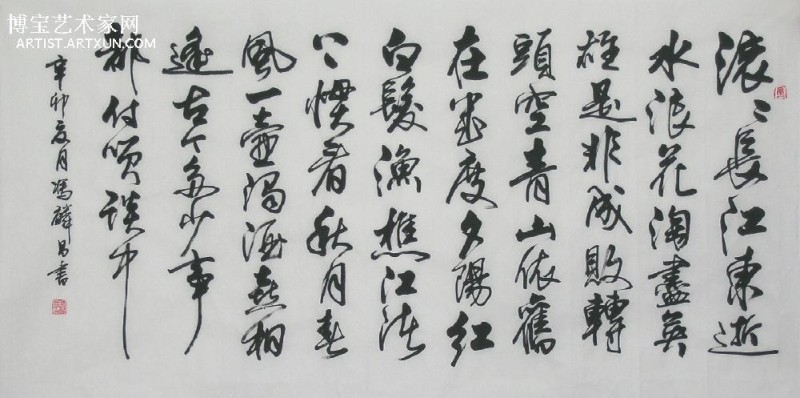 博宝艺术家网
ARTIST.ARTXUN.COM
滚〻長江東逝
水浪花淘盡英
雄是非成敗轉
頭空青山依舊
在幾度夕陽紅
白髮漁樵江渚
上慣看秋月春
風一壺濁酒喜相
逢古今多少事
都付笑談中
辛卯夏月馮麟昌書